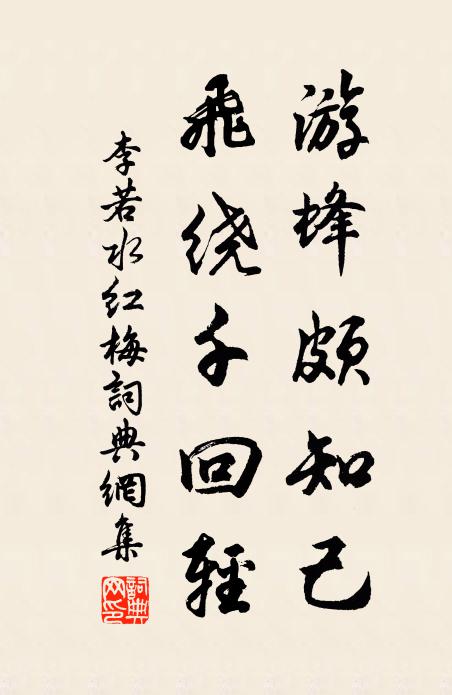 游蜂颇知己
飞绕千回轻
李若水红梅詞典網集
詞典
网印